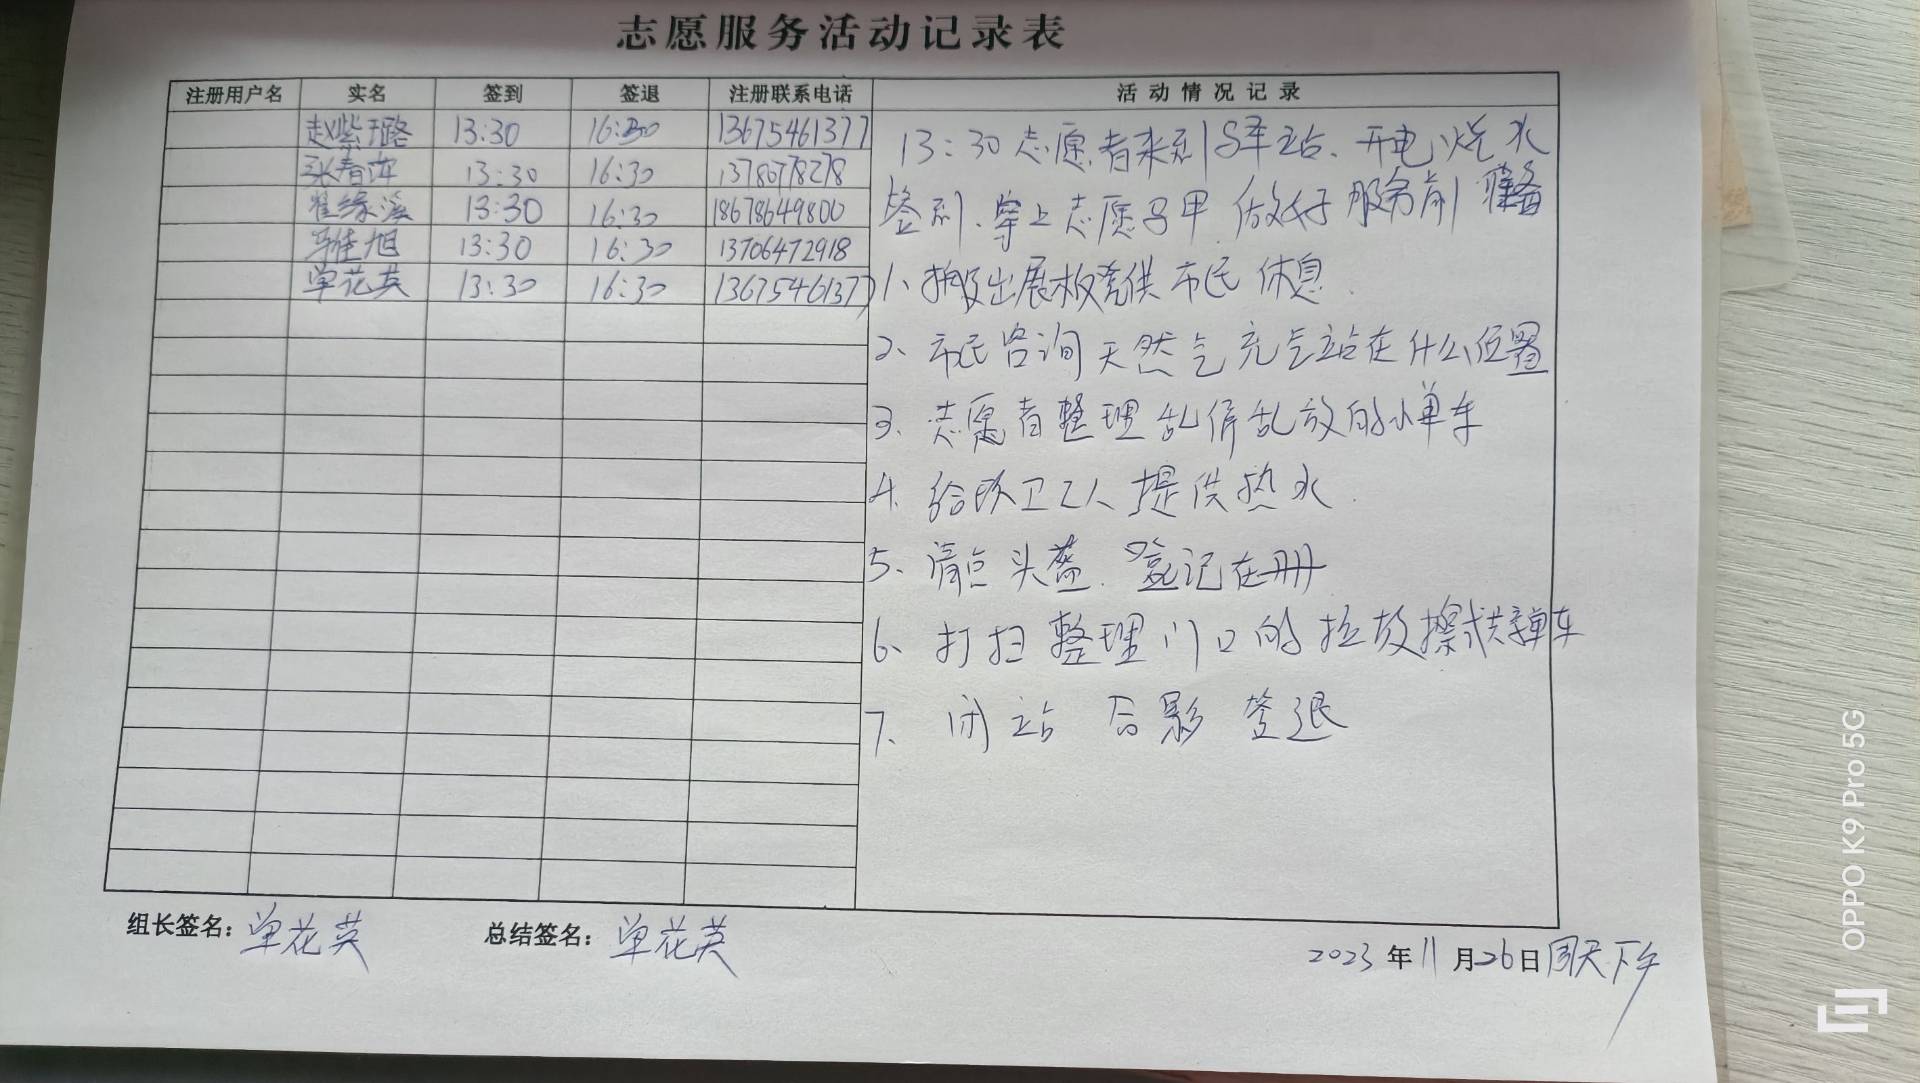 志愿服务活动记录表
注册用户名 实名 签到 签退 注册联系电话 活动情况记录
赵紫璐 13:30 16:30 13675461377
张春萍 13:30 16:30 1378678278
崔缘溪 13:30 16:30 18678649800
佳旭 13:30 16:30 13706472918
单花英 13:30 16:30 13675461377
13:30志愿者来到驿站、开电、烧水
签到、穿上志愿马甲 做好服务前准备
1、搬出展板凳供市民休息.
2、市民咨询天然气充气站在什么位置
3、志愿者整理乱停乱放的小单车
4、给环卫工人提供热水.
5、清点头盔.登记在册
6、打扫整理门口的垃圾擦拭共享单车
7、闭站 合影 签退
组长签名：单花英 总结签名：单花英
2023年11月26日周天下午
OPPO K9 Pro 5G